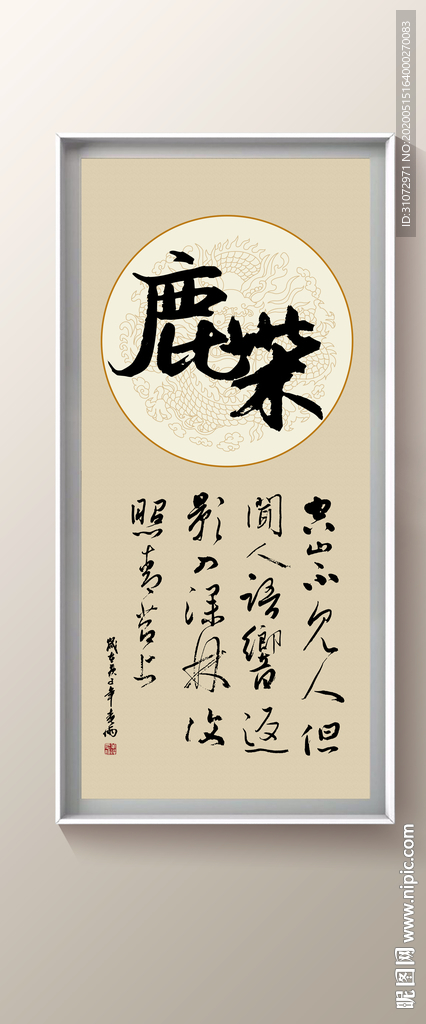 鹿柴
空山不见人但
聞人语響返
影入深林復
照青苔上
歲在庚子年春雨
ID:31072971 NO:20200515164000270083
昵图网 www.nipic.com